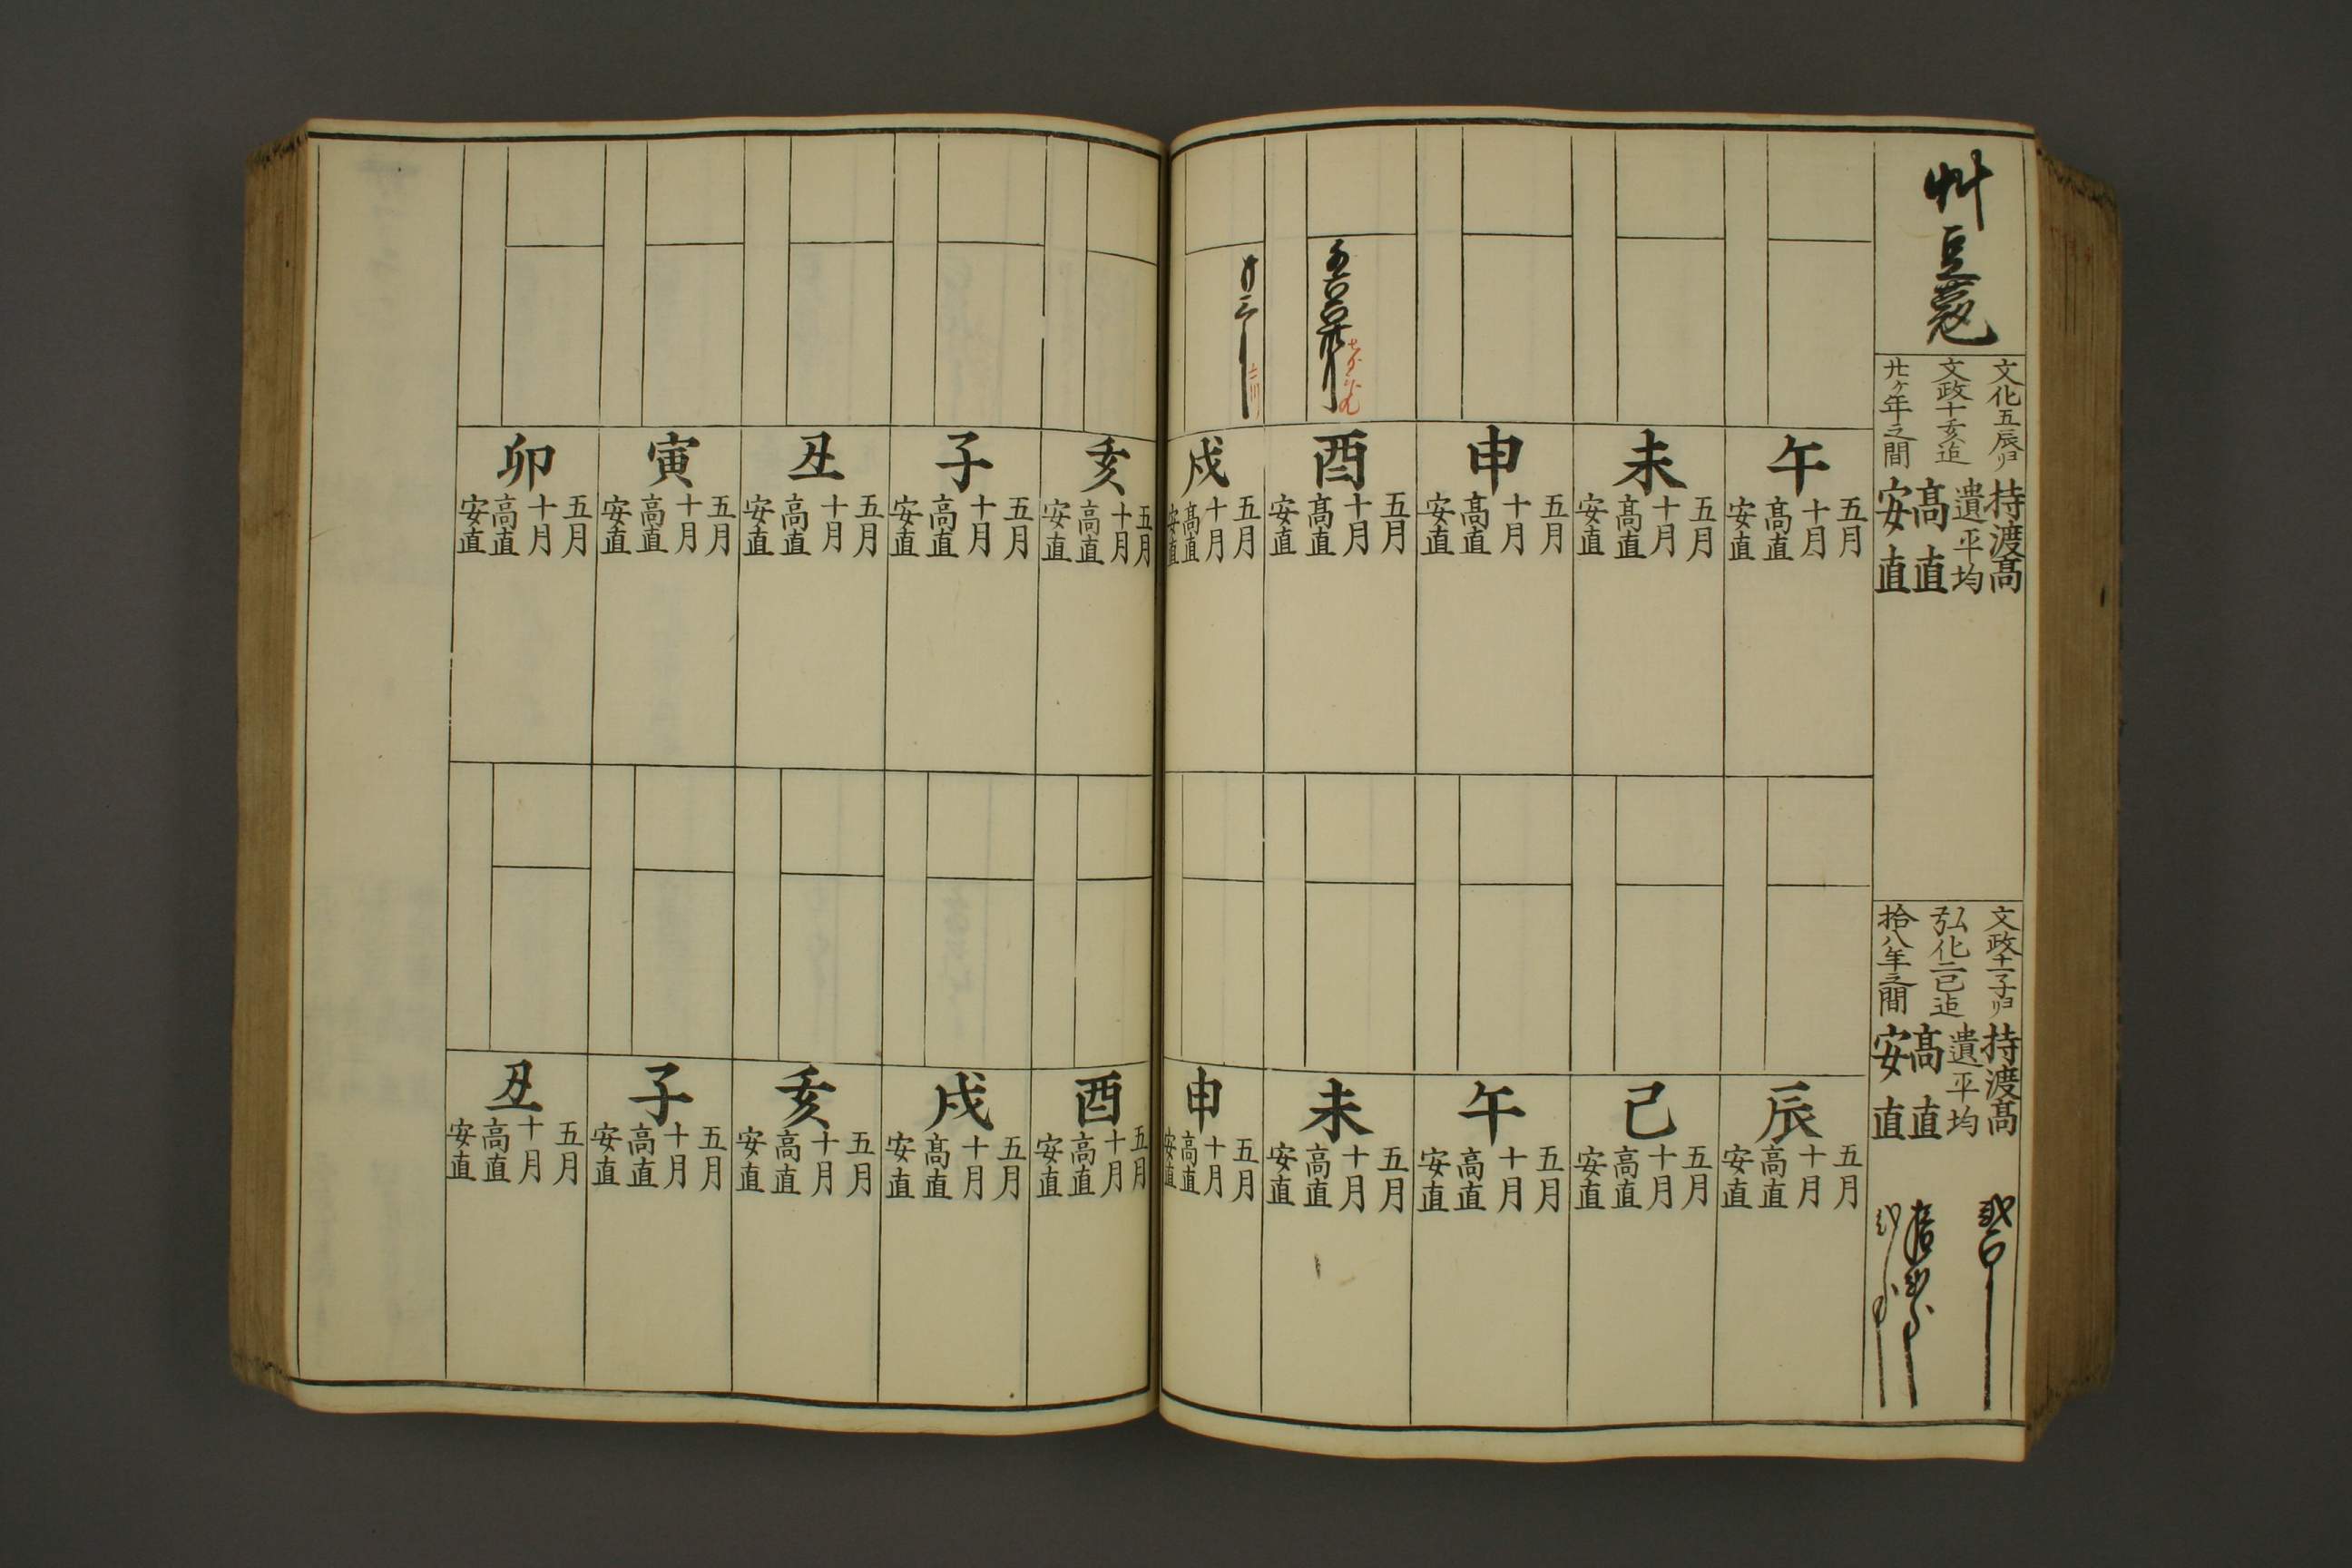 艸豆蔻
文化五辰ゟ
文政十亥迠
廿ヶ年之間
持渡髙
遺平均
髙直
安直
文政十一子ゟ
弘化二巳迠
拾八年之間
持渡髙
遺平均
髙直
安直
午
五月
十月
髙直
安直
未
五月
十月
髙直
安直
申
五月
十月
髙直
安直
酉
五月
十月
髙直
安直
廿三
戌
五月
十月
髙直
安直
辰
五月
十月
髙直
安直
巳
五月
十月
髙直
安直
午
五月
十月
髙直
安直
未
五月
十月
髙直
安直
申
五月
十月
髙直
安直
亥
五月
十月
髙直
安直
子
五月
十月
髙直
安直
丑
五月
十月
髙直
安直
寅
五月
十月
髙直
安直
卯
五月
十月
髙直
安直
酉
五月
十月
髙直
安直
戌
五月
十月
髙直
安直
亥
五月
十月
髙直
安直
子
五月
十月
髙直
安直
丑
五月
十月
髙直
安直